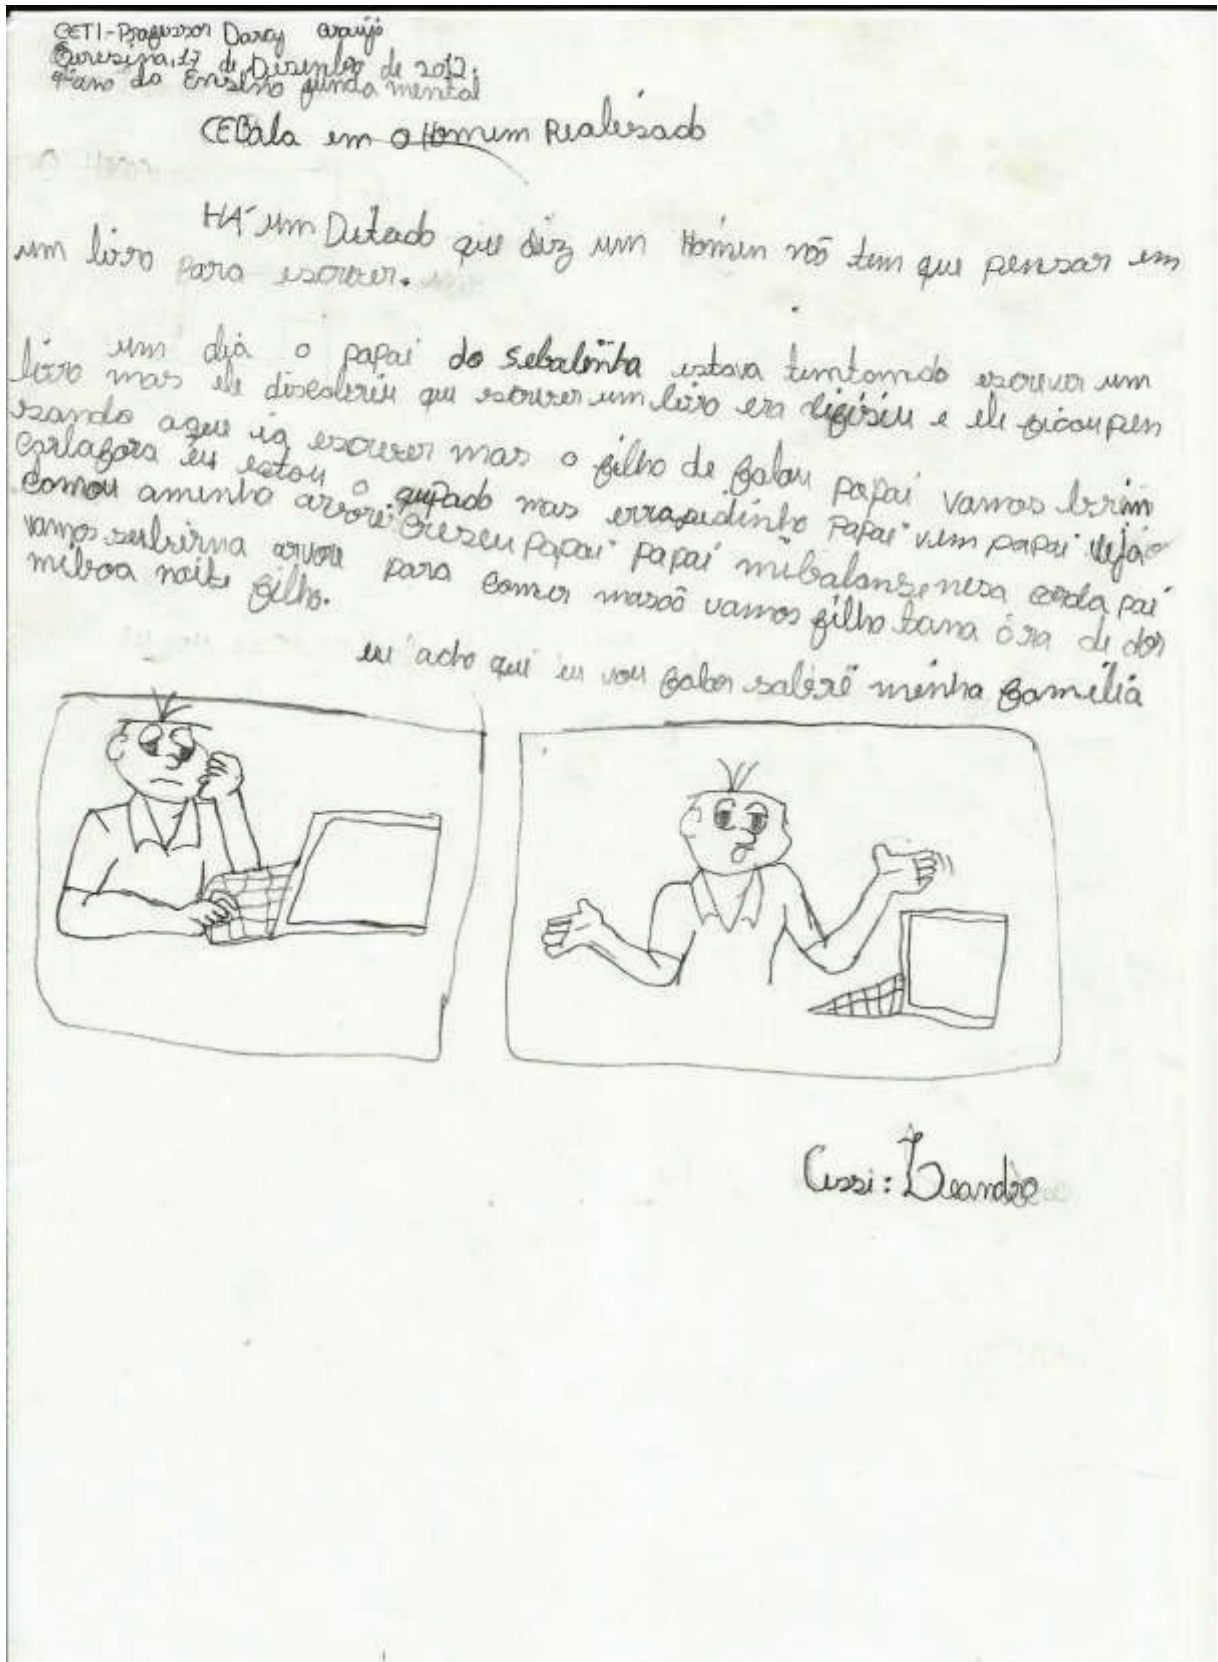 CETI-Professor Darcy Araújo
Teresina, 17 de Disembro de 2012.
4º ano do Ensino funda mental
CEBala em o Homem Realisado
HÁ um Ditado que diz um Homen não tem que pensar em
um livro para escrever.
um dia o papai do sebalinha estava temtamdo escrever um
livro mas ele discobriu que escrever um livro era dificiu e ele ficou pen
sando aque ia escrever mas o filho de falou papai vamos brim
car agora eu estou o qupado mas errapidinho papai vem papai veja
comou aminha arvore cresceu papai papai mibalanse nesa corda pai
vamos subirna arvore para comer masão vamos filho tana óra de dor
miboa noite filho.
eu acho qui eu vou falar sobre minha familia
Assi: Leandro